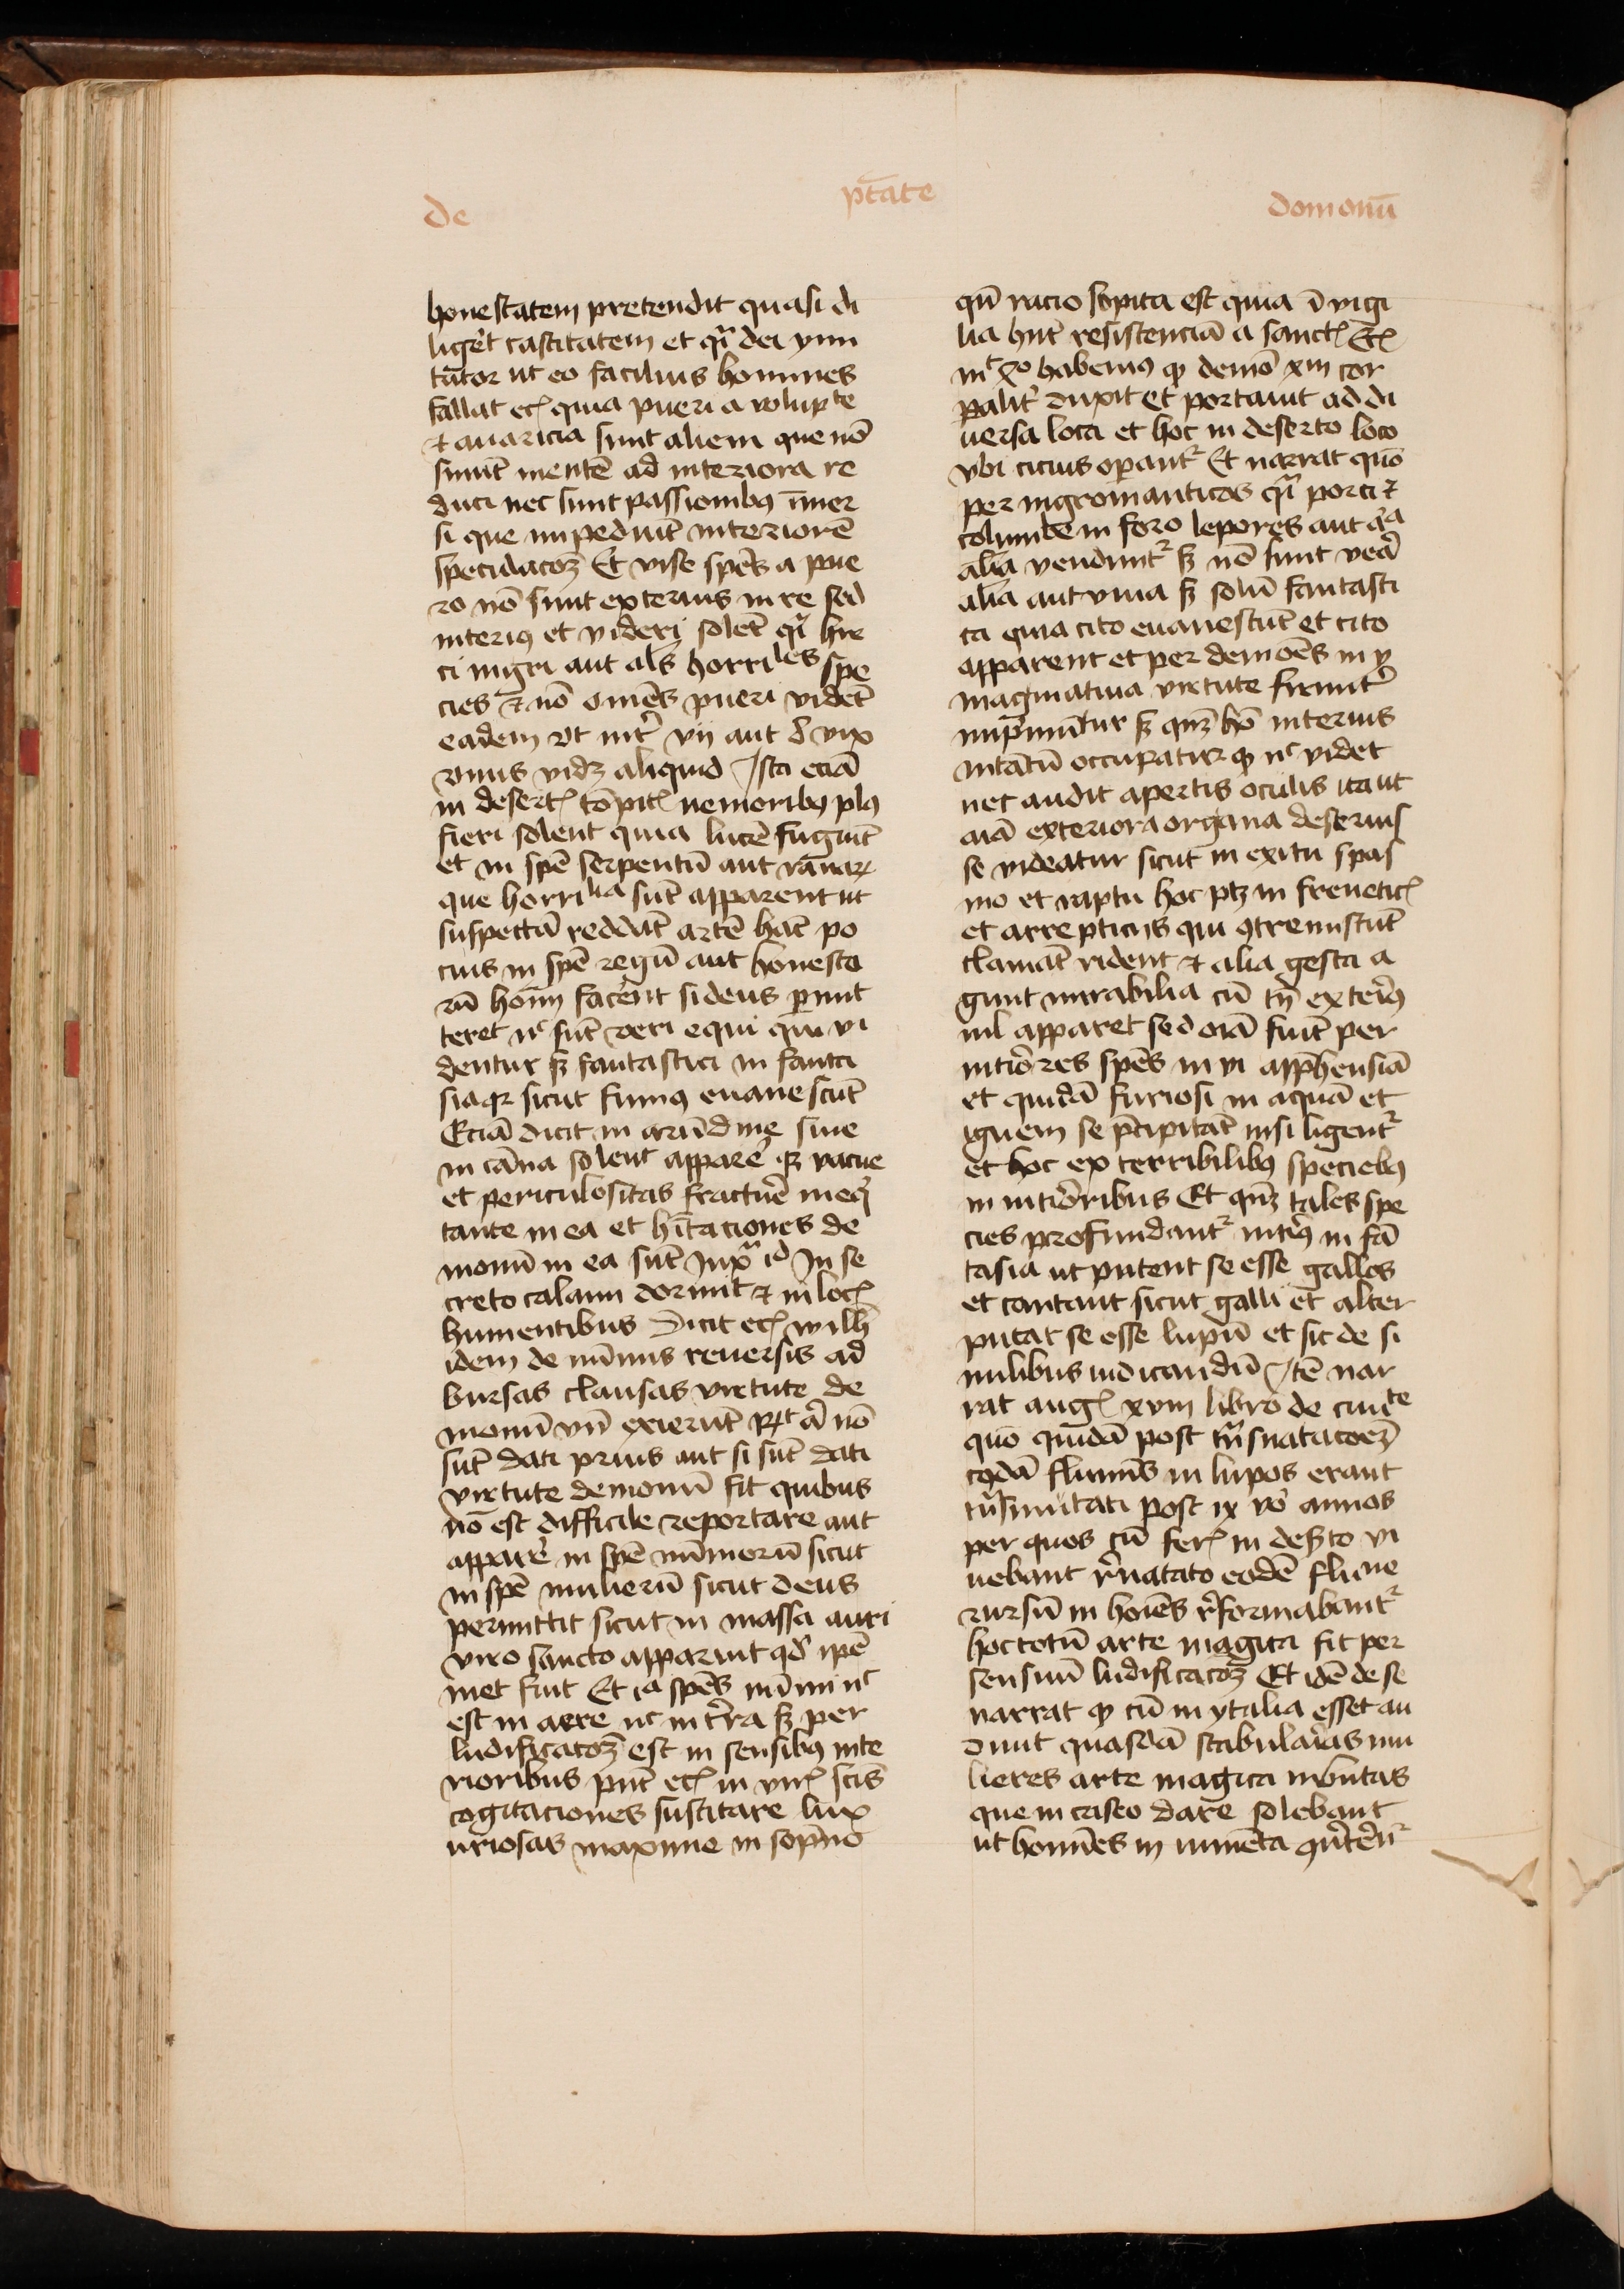 de ptāte domonū
honestatem pretendit quasi di
ligēt castitatem et qͥ dei ymi
tator ut eo facilius homines
fallat ecꝭ quia pueri a volupte
⁊ auaricia sunt alieni que nō
sinūt mentē ad interiora re
duci nec sunt passionibꝰ īmer
si que impediūt interiorē
speculacoꝫ Et vise spēs a pue
ro nō sunt exterius in re sed
interiꝰ et videri solēt qͥ hir
ci nigri aut alˢ horriles spe
cies ⁊ nō omēs pueri vidēt
eadem vt int̉ vij aut vix
vnus vidꝫ aliquid Ista eciā
in desertꝭ nemoribꝰ plꝰ
fieri solent quia lucē fugiūt
et in spē serpentū aut ranaꝝ
que horrilia sūt apparent ut
suspectā reddāt artē hāc po
cius in spē regū aut honesta
rū homī facerent si deus ꝑmit
teret nͨ sūt veri equi qui vi
dentur sꝫ fantastici in fanta
siaqꝫ sicut fumꝰ euanescūt
Eciā dicit in arūdine siue
in cāna solent apparē qꝫ vacue
et periculositas fracturē
tante in ea et hītaciones de
monū in ea sūt iuxͣ id In se
creto calami dormit ⁊ in locꝭ
humentibus Dicit ecꝭ wilh̄
idem de nūmis reuersis ad
bursas clausas virtute de
monū vn̄ exierūt nō
sūt dati prius aut si sūt dati
virtute demonū fit quibus
nō est difficile reportare aut
apparē in spē nūmorū sicut
in spē mulierū sicut deus
permittit sicut in massa auri
viro sancto apparuit qđ ipē
met fuit Et ia spēs nūmi nͨ
est in aere nͨ in t̉ra sꝫ per
ludificatoꝫ est in sensibꝰ inte
rioribus pn̄t ecꝭ in virꝭ scīs
cogitaciones suscitare lux
uriosas maxime in sopno
qn̄ racio sopita est quia ī vigi
lia hn̄t resistenciā a sanctꝭ Ecꝭ
habemꝰ ꝙ demō xp̄m cor
palit̉ duxit et portauit ad di
uersa loca et hoc in deserto loco
vbi cicius operantᷣ Et narrat quō
per nigromanticos qͥ porci ⁊
columbe in foro lepores aut
alia venduntᷣ sꝫ nō sunt
alia aut viua sꝫ solū fantasti
ca quia cito euanescūt et cito
apparent et per demoēs in y
maginatiua virtute firmit̉
imprimūtur sꝫ qn̄ꝫ hō interius
intātū occupatur ꝙ nͨ videt
nec audit apertis oculis ita ut
aīā exteriora organa deseruis
se videatur sicut in exitu spas
mo et raptu hoc ptꝫ in freneticꝭ
et arrepticijs qui ꝯtremiscūt
clamāt rident ⁊ alia gesta a
gunt mirabilia cū tn̄ exteriꝰ
nil apparet sed oīa fiūt per
intiōres spēs in vi app̄hensiā
et quidā furiosi in aquā et
ignem se p̄cipitāt nisi ligentᷣ
et hoc ex terribilibꝰ speciebꝰ
in intiōribus Et qn̄ꝫ tales spe
cies profundantᷣ intiꝰ in fā
tasia ut putent se esse gallos
et cantant sicut galli et alter
putat se esse lupū et sic de si
milibus iudicandū Itē nar
rat augꝭ xviii libro de ciuite
quō quidā post tn̄snatacoēꝫ
cꝰdā flumīs in lupos erant
tn̄smutati post ix vō annos
per quos cū ferꝭ in deserto vi
uebant r̉natato eodē flume
rursū in hoīes r̉formabantᷣ
hoc totū arte magica fit per
sensuū ludificacoꝫ Et idē de se
narrat ꝙ cū in ytalia esset au
diuit quasdā stabularias mu
lieres arte magica imbutas
que in caseo dare solebant
ut homīes in iumēta